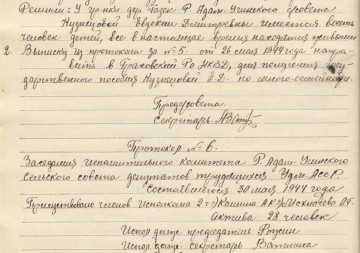 Решили: У гр-ки дер. Удзек Р. Адам-Учинского с/совета
Кузнецовой Евдокии Дмитревны имеется восемь
человек детей, все в настоящее время находятся живыми
2. Выписку из протокола за № 5 от 26 мая 1944 года направить
в Граховский Ро НКВД, для получения государственного
пособия Кузнецовой Е.Д. по многосемейности.
Пред. с/совета
Секретарь
Протокол № 6.
Заседания исполнительного комитета Р. Адам-Учинского
сельского совета депутатов трудящихся Удм АССР.
Состоявшегося 30 мая 1944 года
Присутствовало членов исполкома 2:
актива 28 человек
Испол. долж. председателя
Испол. долж. секретарь